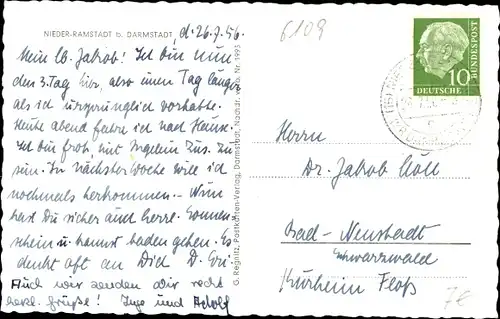 NIEDER-RAMSTADT b. DARMSTADT, d. 26.7.56.
Mein lb. Jakob! Ich bin nun
den 3. Tag hier, also einen Tag länger
als ich ursprünglich vorhatte.
Heute abend fahre ich nach Hause.
Ich bin froh, mit Ingelein zus. zu
sein. In nächster Woche will ich
nochmals herkommen. – Nun
hast Du sicher auch herrl. Sonnen
schein u. kannst baden gehen. Es
denkt oft an Dich D. Evi
Auch wir senden Dir recht
herzl. Grüße! Inge und Adolf
G. Regnitz, Postkarten-Verlag, Darmstadt, Nachdr. verb. Nr. 1993
6109
DEUTSCHE
BUNDESPOST
10
Herrn
Dr. Jakob
Bad-Neustadt
Schwarzwald
Kurheim Floß
7€